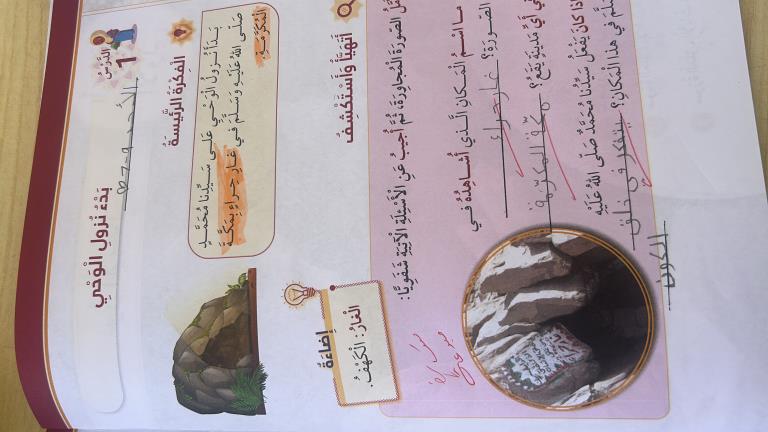 الدَّرْسُ
1
بَدْءُ نُزُولِ الْوَحْيِ
الْفِكْرَةُ الرَّئِيسَةُ
بَدَأَ نُزُولُ الْوَحْيِ عَلَى سَيِّدِنَا مُحَمَّدٍ
صَلَّى اللهُ عَلَيْهِ وَسَلَّمَ فِي غَارِ حِرَاءٍ بِمَكَّةَ
الْمُكَرَّمَةِ
إِضَاءَةٌ
الْغَارُ: الْكَهْفُ.
أَتَهَيَّأُ وَأَسْتَكْشِفُ
الصُّورَةَ الْمُجَاوِرَةَ، ثُمَّ أُجِيبُ عَنِ الْأَسْئِلَةِ الْآتِيَةِ شَفَوِيًّا:
مَا اسْمُ الْمَكَانِ الَّذِي أُشَاهِدُهُ فِي
الصُّورَةِ؟ غار حراء
فِي أَيِّ مَدِينَةٍ يَقَعُ؟ مكة المكرمة
مَاذَا كَانَ يَفْعَلُ سَيِّدُنَا مُحَمَّدٌ صَلَّى اللهُ عَلَيْهِ
وَسَلَّمَ فِي هَذَا الْمَكَانِ؟ يتفكر في خلق
الكون